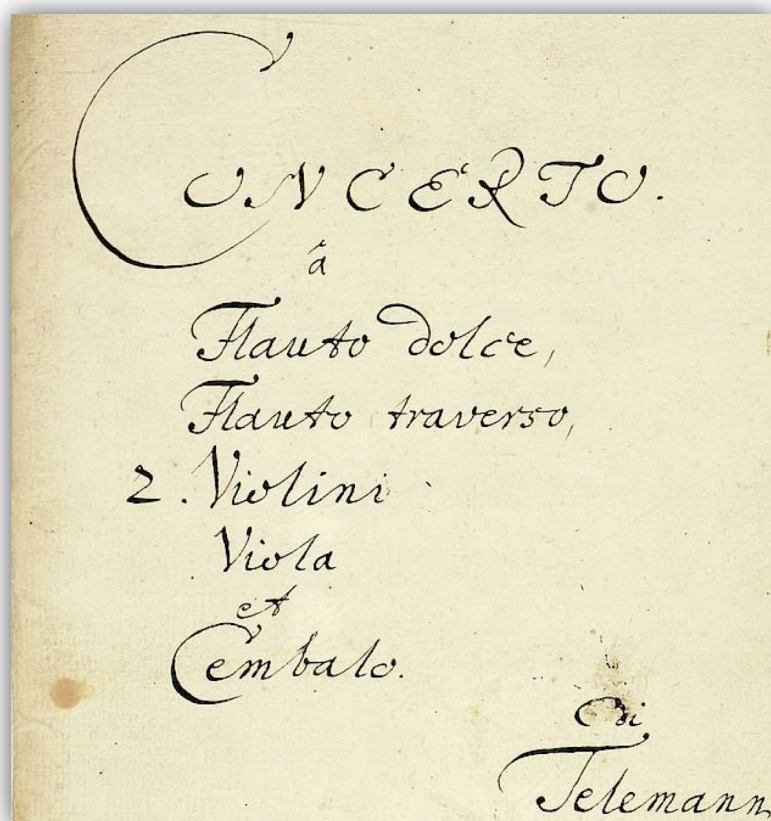 CONCERTO.
â
Flauto dolce,
Flauto traverso,
2. Violini
Viola
et
Cembalo.
Di
Telemann